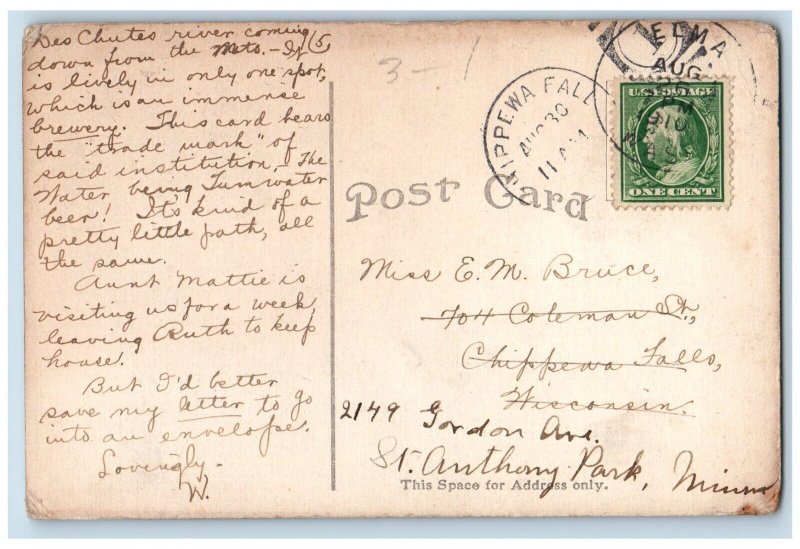 Des Chutes river coming
down from the Mts. - It
is lively in only one spot,
which is an immense
brewery. This card bears
the "trade mark" of
said institution, The
Water being Tumwater
beer! It's kind of a
pretty little path, all
the same.
Aunt Mattie is
visiting us for a week,
leaving Ruth to keep
house.
But I'd better
save my letter to go
into an envelope.
Lovingly -
W.
3-1
CHIPPEWA FALL
AUG 30
11 AM
ELMA
AUG
PM
1910
U.S. POSTAGE
ONE CENT
Post Card
Miss E. M. Bruce,
704 Coleman St.,
Chippewa Falls,
Wisconsin.
2149 Gordon Ave.
St. Anthony Park, Minn
This Space for Address only.